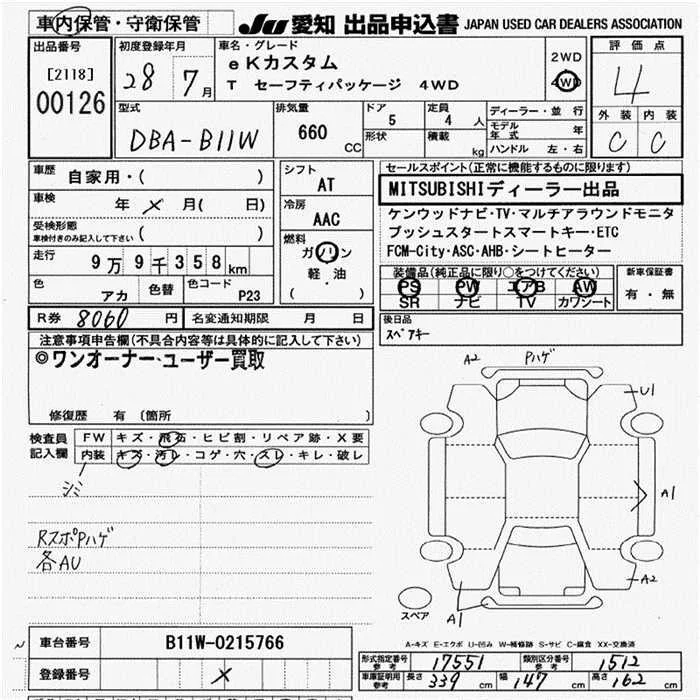 車内保管・守衛保管
JU 愛知 出品申込書 JAPAN USED CAR DEALERS ASSOCIATION
出品番号
[2118]
00126
初度登録年月
28 7月
車名・グレード
eKカスタム
T セーフティパッケージ 4WD
2WD
4WD
評価点
4
外装 内装
C C
型式
DBA-B11W
排気量
660 CC
ドア
5
形状
定員
4 人
積載
kg
ディーラー・並行
モデル年式 年
ハンドル 左・右
車歴
自家用・( )
車検 年 メ 月( 日)
受検形態
車検付きのみ記入して下さい ( )
走行 9万9千358km
色 アカ 色替 色コード P23
シフト
AT
冷房
AAC
燃料
ガソリン
軽・油
( )
セールスポイント(正常に機能するものに限ります)
MITSUBISHIディーラー出品
ケンウッドナビ・TV・マルチアラウンドモニタ
プッシュスタートスマートキー・ETC
FCM-City・ASC・AHB・シートヒーター
装備品(純正品に限り○をつけてください)
PS PW エアB AW
SR ナビ TV カワシート
新車保証書
有・無
R券 8060 円 名変通知期限 月 日
後日品
スペアキー
注意事項申告欄(不具合内容等は具体的に記入して下さい)
◎ワンオーナー・ユーザー買取
修復歴 有 (箇所 )
検査員記入欄
FW キズ・飛石・ヒビ割・リペア跡・X要
内装 キズ・汚レ・コゲ・穴・スレ・キレ・破レ
シミ
RスポPハゲ
各AU
A2 Pハゲ
U1
A1
A2
A1
スペア
A-キズ E-エクボ U-凹み W-補修跡 S-サビ C-腐食 XX-交換済
車台番号 B11W-0215766
登録番号 メ
形式指定番号 参考 17551 類別区分番号 参考 1512
車庫証明用 参考 長さ 339 cm 幅 147 cm 高さ 162 cm